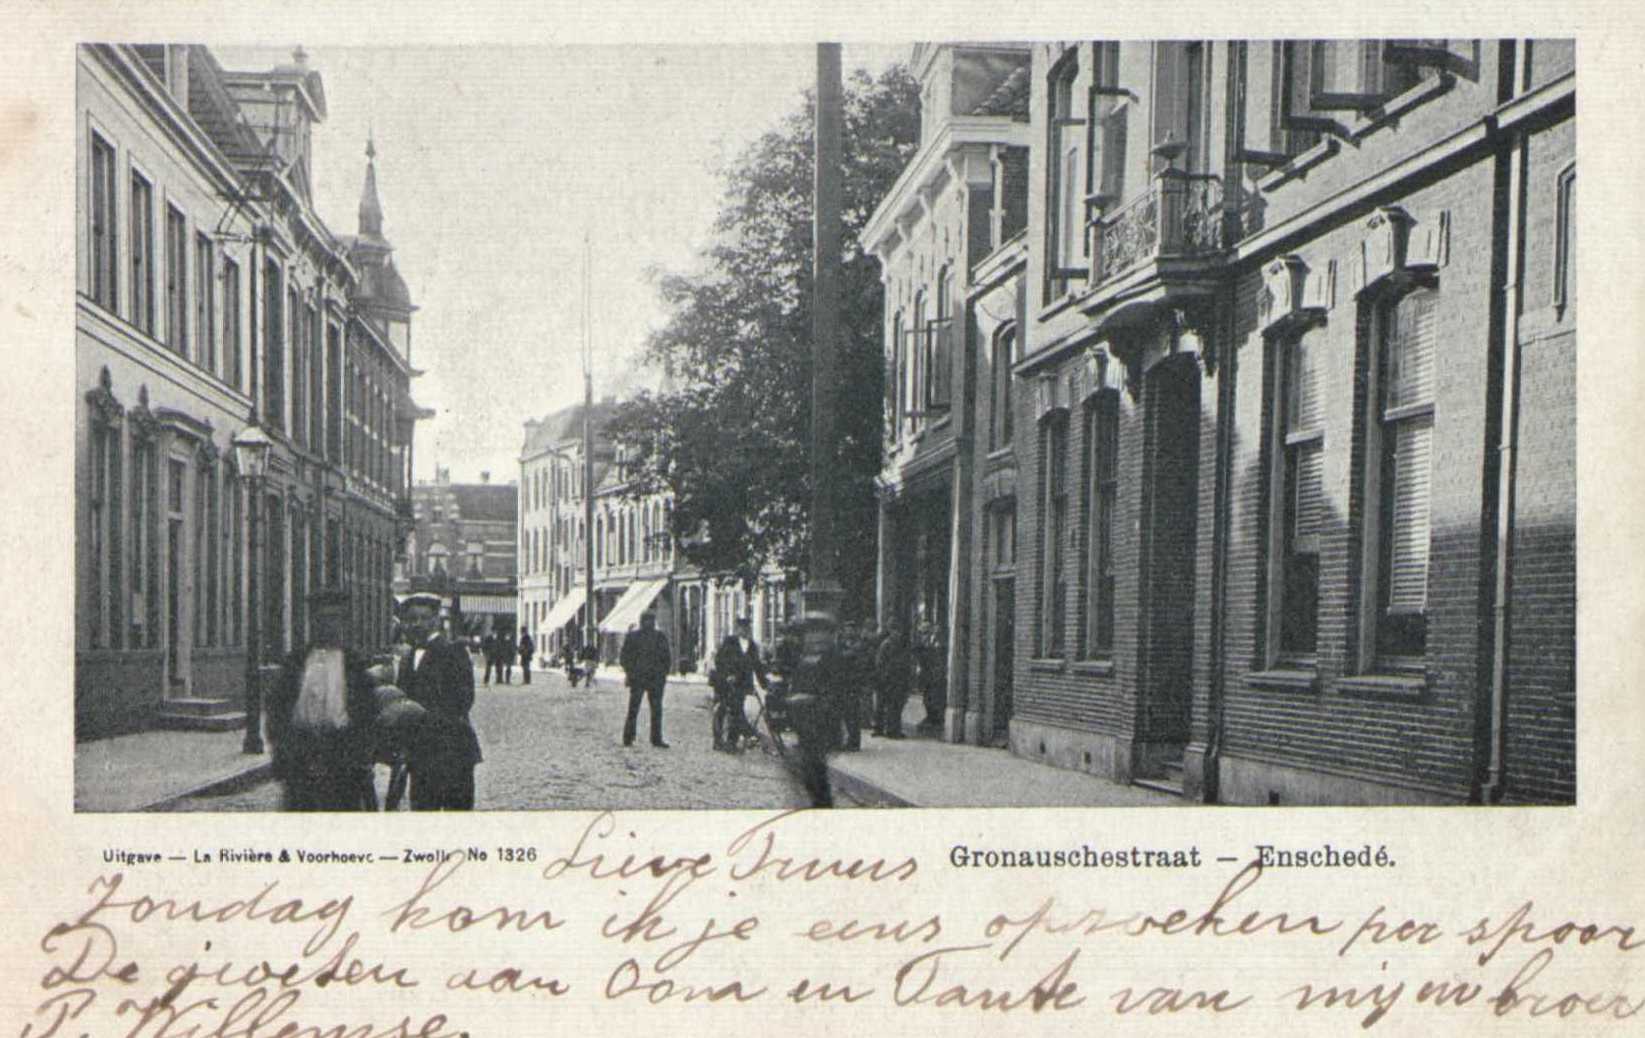 Uitgave — La Rivière & Voorhoeve — Zwolle No 1326
Lieve Truus
Gronauschestraat — Enschedé.
Zondag kom ik je eens opzoeken per spoor
De groeten aan Oom en Tante van mij en broer
P. Willemse.